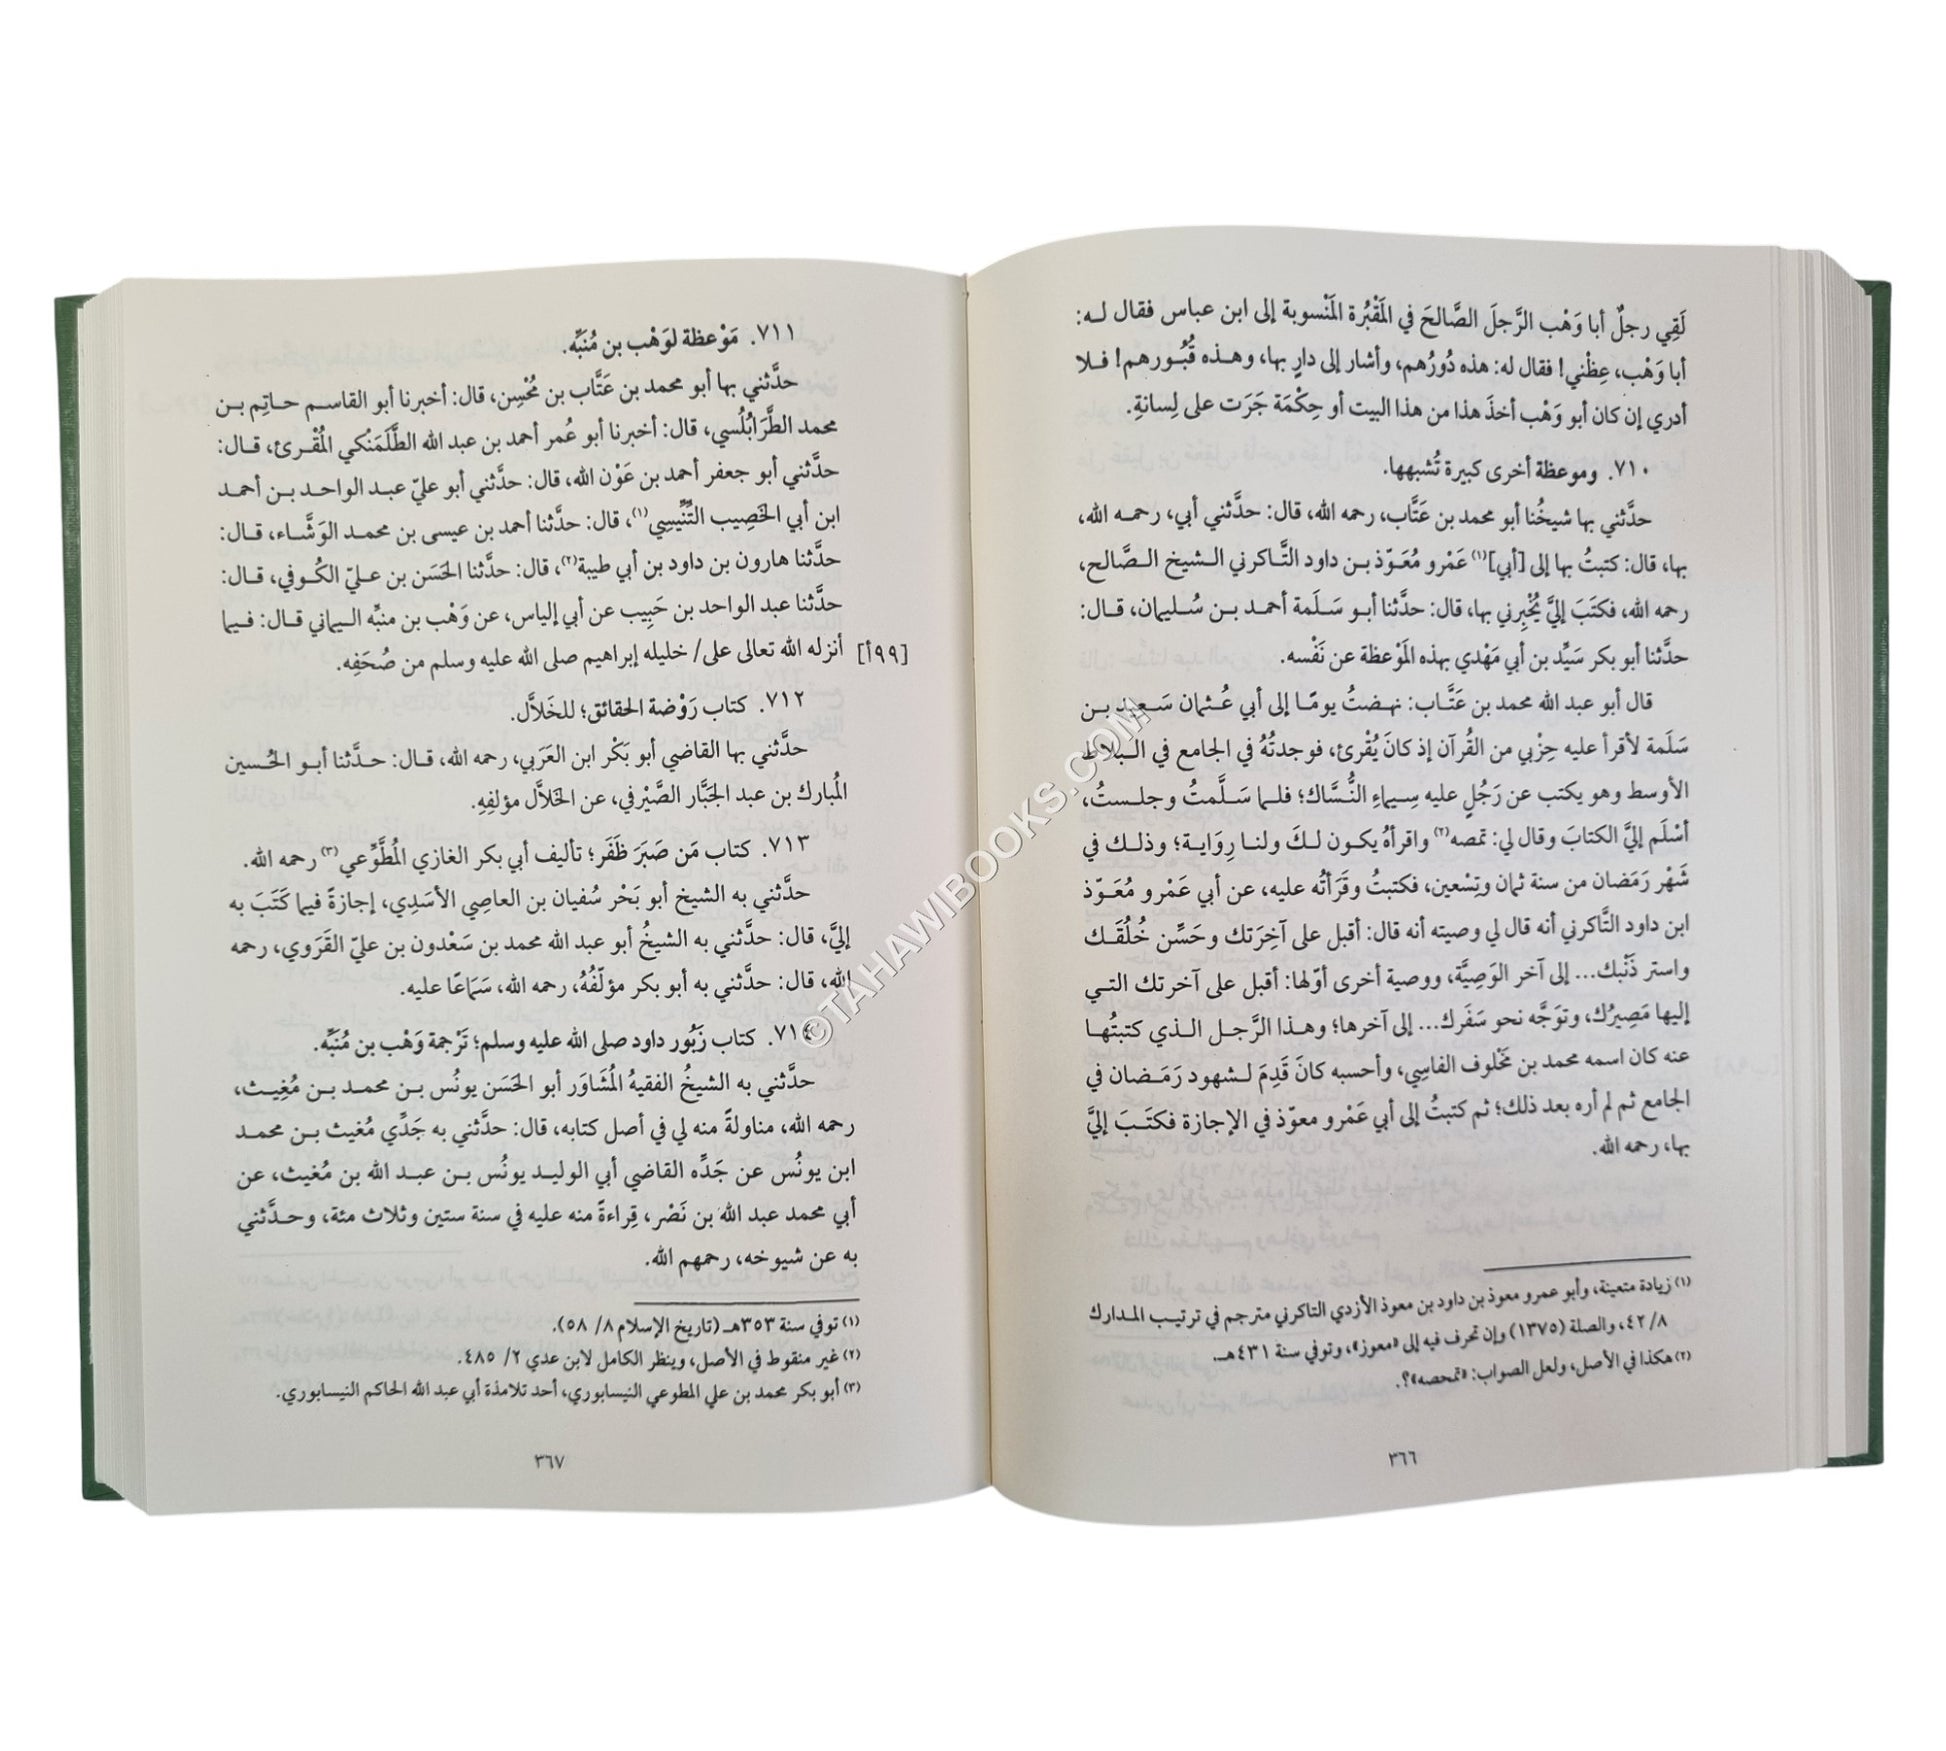 لَقِي رجلٌ أبا وَهْب الرَّجلَ الصَّالحَ في المَقْبُرة المَنْسوبة إلى ابن عباس فقال له:
أبا وَهْب، عِظْني! فقال له: هذه دُورُهم، وأشار إلى دارٍ بها، وهذه قُبُورهم! فلا
أدري إن كان أبو وَهْب أخذَ هذا من هذا البيت أو حِكْمَة جَرَت على لِسانةِ.
٧١٠. وموعظة أخرى كبيرة تُشبهها.
حدَّثني بها شيخُنا أبو محمد بن عَتَّاب، رحمه الله، قال: حدَّثني أبي، رحمه الله،
بها، قال: كتبتُ بها إلى [أبي](١) عَمْرو مُعَوّذ بن داود التَّاكرني الشيخ الصَّالح،
رحمه الله، فكتَبَ إليَّ يُخْبِرني بها، قال: حدَّثنا أبو سَلَمة أحمد بن سُليمان، قال:
حدَّثنا أبو بكر سَيِّد بن أبي مَهْدي بهذه المَوْعظة عن نَفْسه.
قال أبو عبد الله محمد بن عَتَّاب: نهضتُ يومًا إلى أبي عُثمان سَعيد بن
سَلَمة لأقرأ عليه حِزْبي من القُرآن إذ كانَ يُقْرئ، فوجدتُهُ في الجامع في البلاط
الأوسط وهو يكتب عن رَجُلٍ عليه سِيماءِ النُّسَّاك؛ فلما سَلَّمتُ وجلستُ،
أسْلَم إليَّ الكتابَ وقال لي: تمصه(٢) واقرأهُ يكون لكَ ولنا رِوَاية؛ وذلك في
شَهْر رَمَضان من سنة ثمان وتِسْعين، فكتبتُ وقَرَأتُه عليه، عن أبي عَمْرو مُعَوّذ
ابن داود التَّاكرني أنه قال لي وصيته أنه قال: أقبل على آخِرَتك وحَسِّن خُلُقَك
واستر ذَنْبك... إلى آخر الوَصِيَّة، ووصية أخرى أوّلها: أقبل على آخرتك التي
إليها مَصِيرُك، وتوَجَّه نحو سَفَرك... إلى آخرها؛ وهذا الرَّجل الذي كتبتُها
عنه كان اسمه محمد بن مَخْلوف الفاسِي، وأحسبه كانَ قَدِمَ لشهود رَمَضان في
الجامع ثم لم أره بعد ذلك؛ ثم كتبتُ إلى أبي عَمْرو معوّذ في الإجازة فكتَبَ إليَّ
بها، رحمه الله.
(١) زيادة متعينة، وأبو عمرو معوذ بن داود بن معوذ الأزدي التاكرني مترجم في ترتيب المدارك
٨/ ٤٢، والصلة (١٣٧٥) وإن تحرف فيه إلى «معوز»، وتوفي سنة ٤٣١هـ.
(٢) هكذا في الأصل، ولعل الصواب: «تمحصه»؟.
٣٦٦
٧١١. مَوْعظة لوَهْب بن مُنَبِّه.
حدَّثني بها أبو محمد بن عَتَّاب بن مُحْسِن، قال: أخبرنا أبو القاسم حاتِم بن
محمد الطَّرَابُلُسي، قال: أخبرنا أبو عُمر أحمد بن عبد الله الطَّلَمَنْكي المُقْرئ، قال:
حدَّثني أبو جعفر أحمد بن عَوْن الله، قال: حدَّثني أبو عليّ عبد الواحد بن أحمد
ابن أبي الخَصِيب التِّنِّيسِي(١)، قال: حدَّثنا أحمد بن عيسى بن محمد الوَشَّاء، قال:
حدَّثنا هارون بن داود بن أبي طيبة(٢)، قال: حدَّثنا الحَسَن بن عليّ الكُوفي، قال:
حدَّثنا عبد الواحد بن حَبِيب عن أبي إلياس، عن وَهْب بن منبِّه اليماني قال: فيما
[٩٩أ] أنزله الله تعالى على/ خليله إبراهيم صلى الله عليه وسلم من صُحَفِه.
٧١٢. كتاب رَوْضة الحقائق؛ للخَلاَّل.
حدَّثني بها القاضي أبو بَكْر ابن العَرَبي، رحمه الله، قال: حدَّثنا أبو الحُسين
المُبارك بن عبد الجَبَّار الصَّيْرفي، عن الخَلاَّل مؤلفِهِ.
٧١٣. كتاب مَن صَبَرَ ظَفَر؛ تأليف أبي بكر الغازي المُطَّوِّعي(٣) رحمه الله.
حدَّثني به الشيخ أبو بَحْر سُفيان بن العاصِي الأسَدِي، إجازةً فيما كَتَبَ به
إليَّ، قال: حدَّثني به الشيخُ أبو عبد الله محمد بن سَعْدون بن عليّ القَرَوي، رحمه
الله، قال: حدَّثني به أبو بكر مؤلّفُهُ، رحمه الله، سَمَاعًا عليه.
٧١٤. كتاب زَبُور داود صلى الله عليه وسلم؛ تَرْجمة وَهْب بن مُنَبِّه.
حدَّثني به الشيخُ الفقيهُ المُشَاوَر أبو الحَسَن يونُس بن محمد بن مُغِيث،
رحمه الله، مناولةً منه لي في أصل كتابه، قال: حدَّثني به جَدِّي مُغيث بن محمد
ابن يونُس عن جَدِّه القاضي أبي الوليد يونُس بن عبد الله بن مُغيث، عن
أبي محمد عبد الله بن نَصْر، قِراءةً منه عليه في سنة ستين وثلاث مئة، وحدَّثني
به عن شيوخه، رحمهم الله.
(١) توفي سنة ٣٥٣هـ (تاريخ الإسلام ٨/ ٥٨).
(٢) غير منقوط في الأصل، وينظر الكامل لابن عدي ٢/ ٤٨٥.
(٣) أبو بكر محمد بن علي المطوعي النيسابوري، أحد تلامذة أبي عبد الله الحاكم النيسابوري.
٣٦٧
©TAHAWIBOOKS.COM